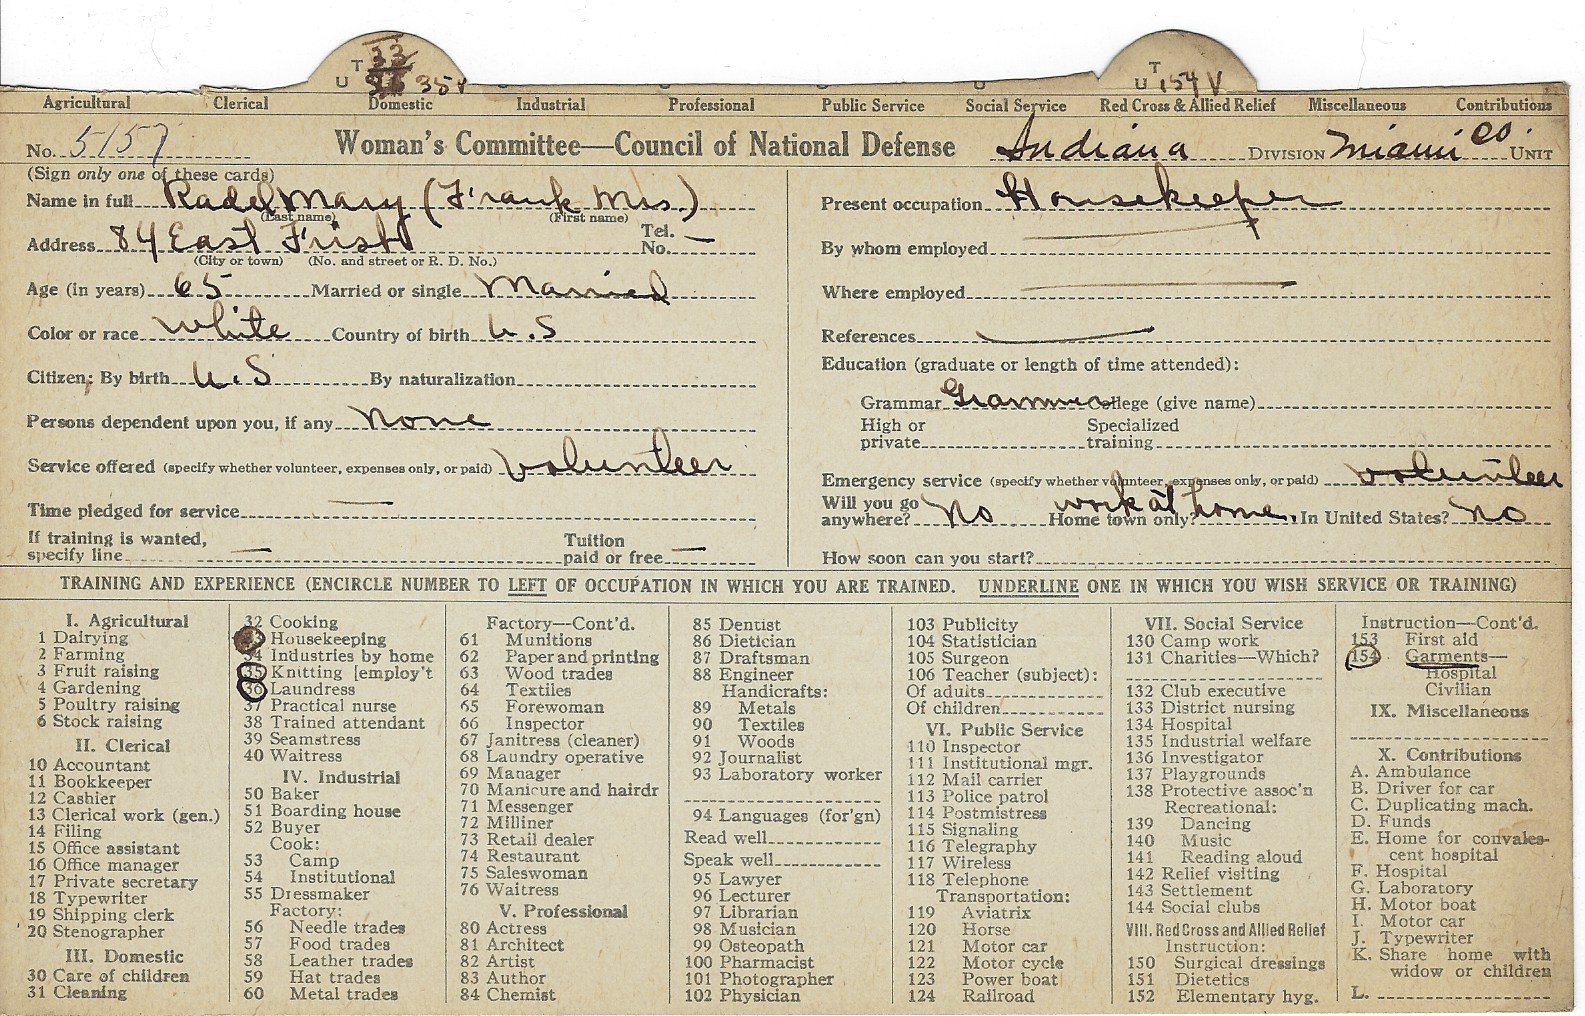 T 33
U 35 V
T
U 154 V
Agricultural Clerical Domestic Industrial Professional Public Service Social Service Red Cross & Allied Relief Miscellaneous Contributions
No. 5157 Woman's Committee—Council of National Defense Indiana DIVISION Miami Co. UNIT
(Sign only one of these cards)
Name in full Radel Mary (Frank Mrs.)
(Last name) (First name)
Address 84 East Frist Tel. No. —
(City or town) (No. and street or R. D. No.)
Age (in years) 65 Married or single Married
Color or race White Country of birth U.S
Citizen: By birth U.S By naturalization
Persons dependent upon you, if any None
Service offered (specify whether volunteer, expenses only, or paid) Volunteer
Time pledged for service —
If training is wanted,
specify line — Tuition paid or free —
Present occupation Housekeeper
By whom employed
Where employed
References
Education (graduate or length of time attended):
Grammar Grammer College (give name)
High or private Specialized training
Emergency service (specify whether volunteer, expenses only, or paid) volunteer
Will you go anywhere? No Home town only? work at home. In United States? No
How soon can you start?
TRAINING AND EXPERIENCE (ENCIRCLE NUMBER TO LEFT OF OCCUPATION IN WHICH YOU ARE TRAINED. UNDERLINE ONE IN WHICH YOU WISH SERVICE OR TRAINING)
I. Agricultural
1 Dairying
2 Farming
3 Fruit raising
4 Gardening
5 Poultry raising
6 Stock raising
II. Clerical
10 Accountant
11 Bookkeeper
12 Cashier
13 Clerical work (gen.)
14 Filing
15 Office assistant
16 Office manager
17 Private secretary
18 Typewriter
19 Shipping clerk
20 Stenographer
III. Domestic
30 Care of children
31 Cleaning
32 Cooking
33 Housekeeping
34 Industries by home
35 Knitting [employ't
36 Laundress
37 Practical nurse
38 Trained attendant
39 Seamstress
40 Waitress
IV. Industrial
50 Baker
51 Boarding house
52 Buyer
Cook:
53 Camp
54 Institutional
55 Dressmaker
Factory:
56 Needle trades
57 Food trades
58 Leather trades
59 Hat trades
60 Metal trades
Factory—Cont'd.
61 Munitions
62 Paper and printing
63 Wood trades
64 Textiles
65 Forewoman
66 Inspector
67 Janitress (cleaner)
68 Laundry operative
69 Manager
70 Manicure and hairdr
71 Messenger
72 Milliner
73 Retail dealer
74 Restaurant
75 Saleswoman
76 Waitress
V. Professional
80 Actress
81 Architect
82 Artist
83 Author
84 Chemist
85 Dentist
86 Dietician
87 Draftsman
88 Engineer
Handicrafts:
89 Metals
90 Textiles
91 Woods
92 Journalist
93 Laboratory worker
94 Languages (for'gn)
Read well
Speak well
95 Lawyer
96 Lecturer
97 Librarian
98 Musician
99 Osteopath
100 Pharmacist
101 Photographer
102 Physician
103 Publicity
104 Statistician
105 Surgeon
106 Teacher (subject):
Of adults
Of children
VI. Public Service
110 Inspector
111 Institutional mgr.
112 Mail carrier
113 Police patrol
114 Postmistress
115 Signaling
116 Telegraphy
117 Wireless
118 Telephone
Transportation:
119 Aviatrix
120 Horse
121 Motor car
122 Motor cycle
123 Power boat
124 Railroad
VII. Social Service
130 Camp work
131 Charities—Which?
132 Club executive
133 District nursing
134 Hospital
135 Industrial welfare
136 Investigator
137 Playgrounds
138 Protective assoc'n
Recreational:
139 Dancing
140 Music
141 Reading aloud
142 Relief visiting
143 Settlement
144 Social clubs
VIII. Red Cross and Allied Relief
Instruction:
150 Surgical dressings
151 Dietetics
152 Elementary hyg.
Instruction—Cont'd.
153 First aid
154 Garments—
Hospital
Civilian
IX. Miscellaneous
X. Contributions
A. Ambulance
B. Driver for car
C. Duplicating mach.
D. Funds
E. Home for convalescent hospital
F. Hospital
G. Laboratory
H. Motor boat
I. Motor car
J. Typewriter
K. Share home with
widow or children
L.